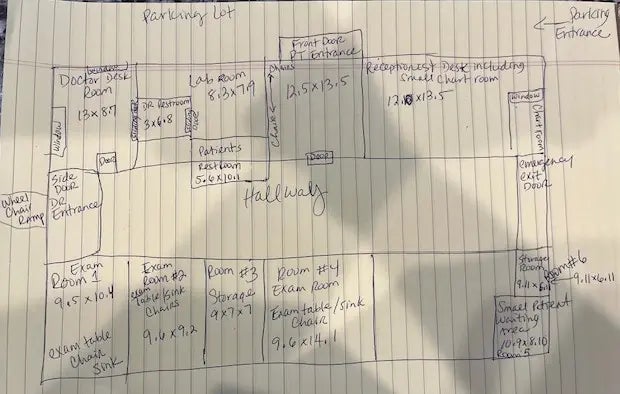 Parking Lot
Parking
Entrance
Front Door
PT Entrance
Window
Doctor Desk
Room
13 x 8.7
Window
Door
DR Restroom
3x6.8
Lab Room
8.3x7.9
Patients
Restroom
5.6x10.1
Chairs
Chairs
12.5x13.5
Door
Receptionest Desk including
Small Chart room
12.10x13.5
Window
Chart room
emergency
exit
Door
Side
Door
DR.
Entrance
Wheel
Chair
Ramp
Hallway
Exam
Room 1
9.5x10.4
exam table
Chair
Sink
Exam
Room #2
exam
table/sink
Chairs
9.6x9.2
Room #3
Storage
9x7x7
Room #4
Exam Room
Exam table/sink
Chair
9.6x14.1
Storage
Room
9.11x6.11
Room #6
9.11x6.11
Small Patient
Waiting
Area
10.9x8.10
Room 5